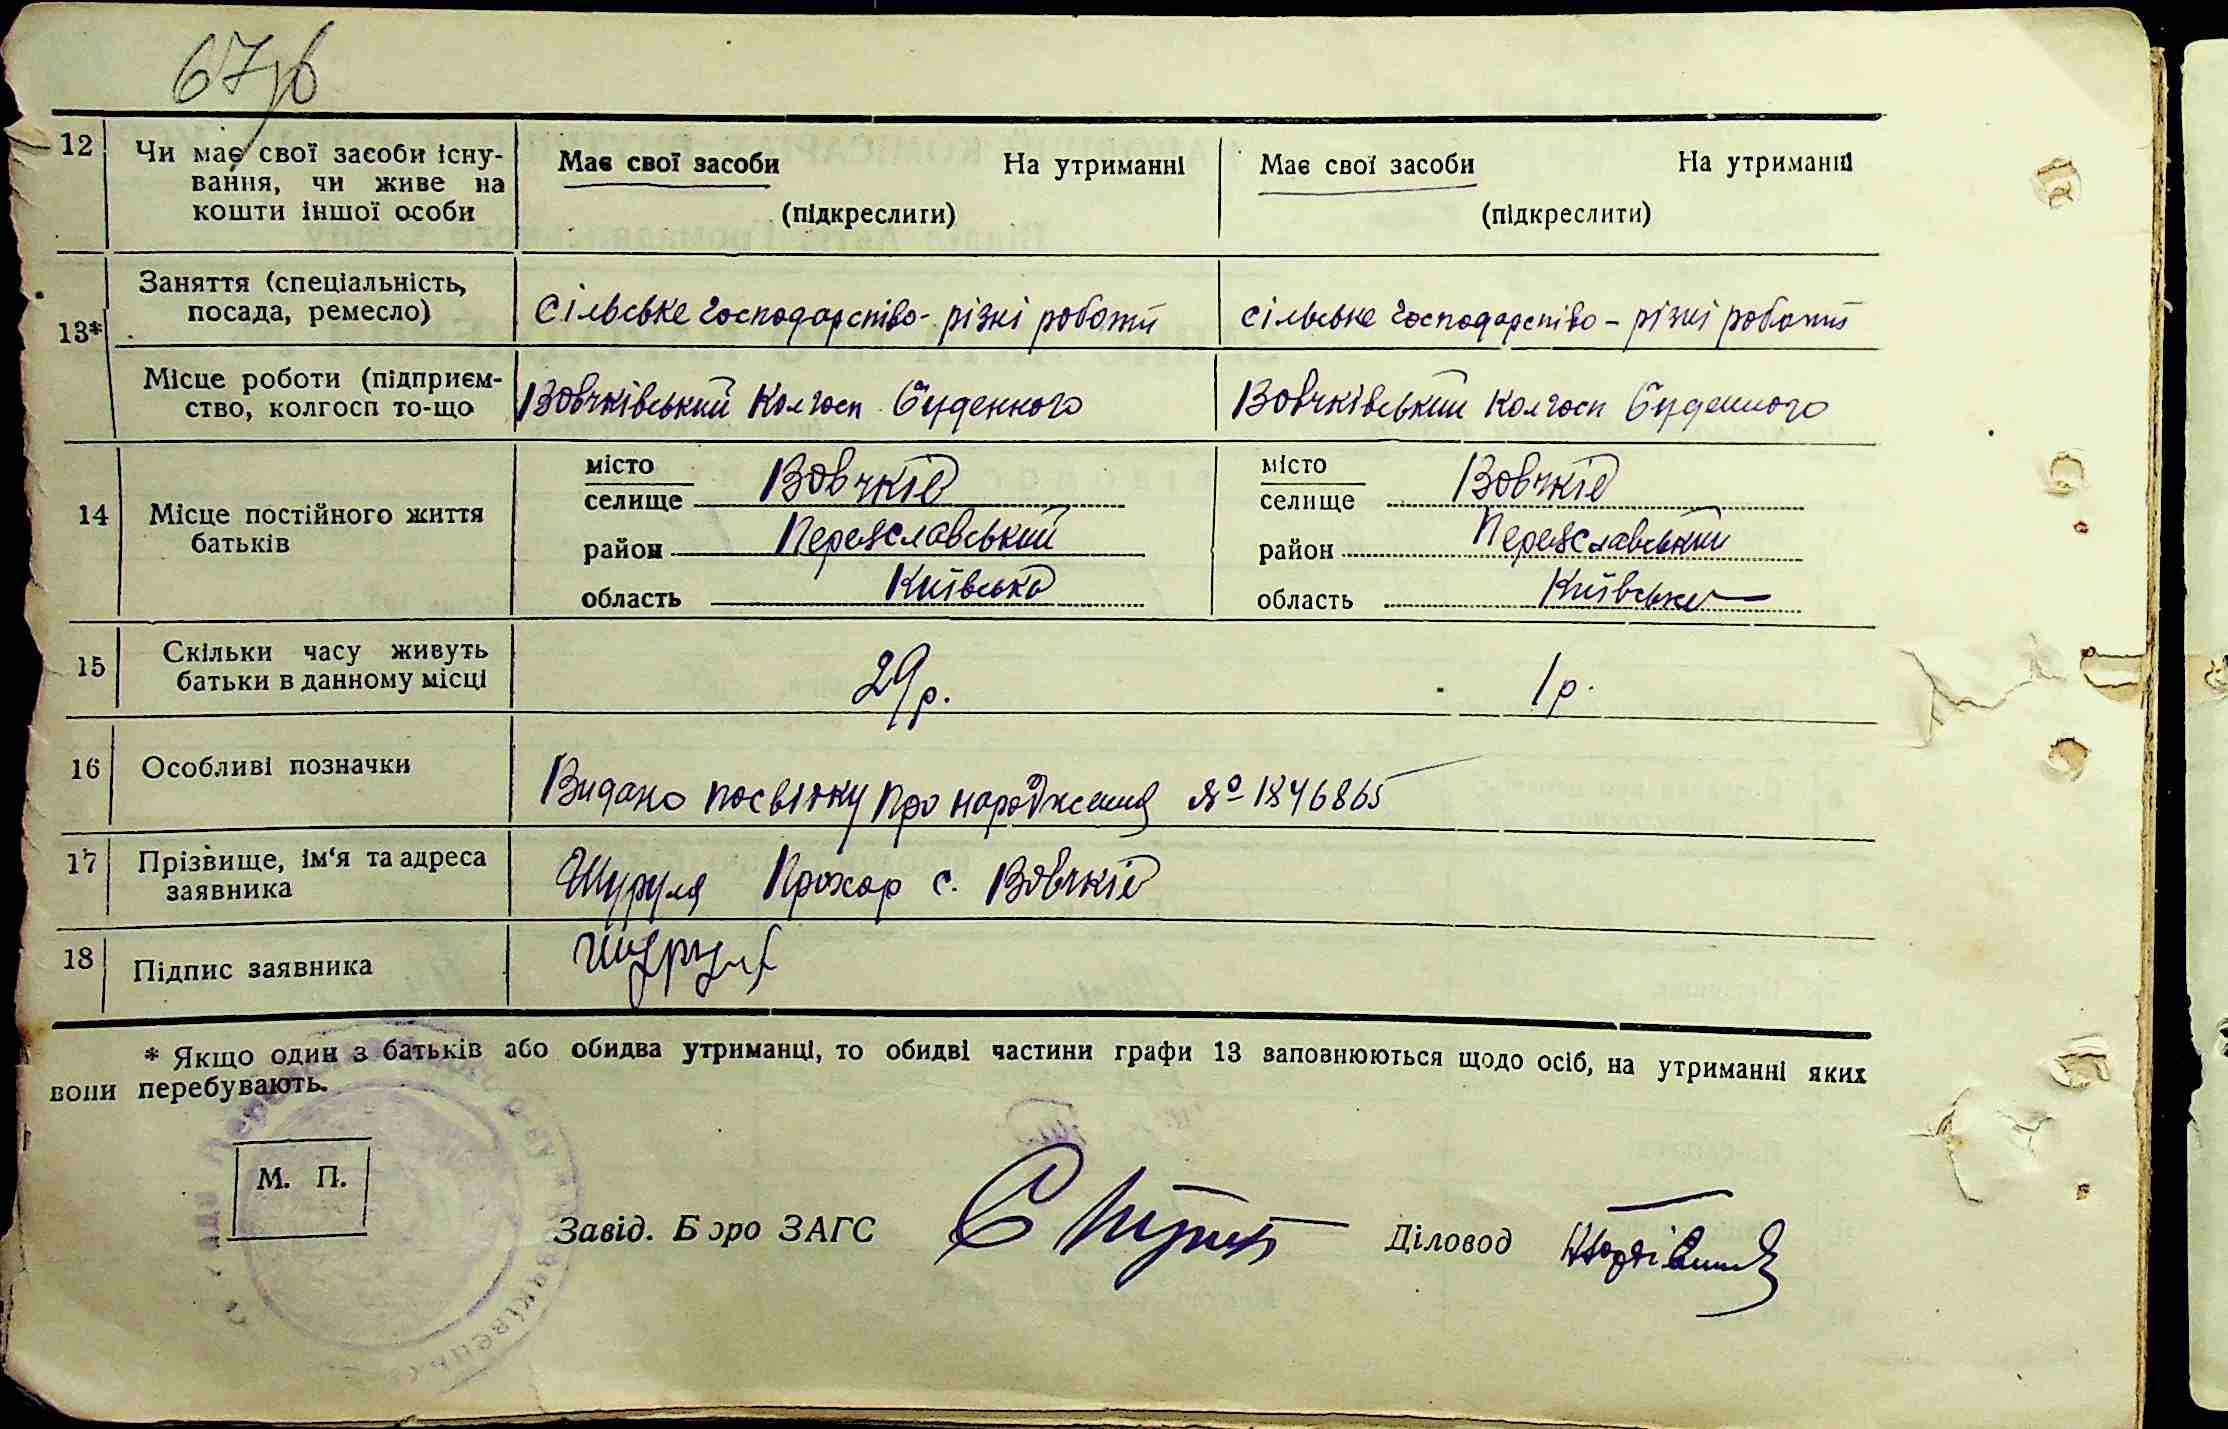 67зв
12 Чи має свої засоби існу- Має свої засоби На утриманні Має свої засоби На утриманні
вання, чи живе на
кошти іншої особи (підкреслити) (підкреслити)
Заняття (спеціальність,
посада, ремесло) Сільське господарство - різні роботи сільське господарство - різні роботи
13*
Місце роботи (підприєм-
ство, колгосп то-що Вовчківський Колгосп Буденного Вовчківський Колгосп Буденного
місто Вовчків місто Вовчків
селище селище
14 Місце постійного життя
батьків район Переяславський район Переяславський
область Київська область Київська
15 Скільки часу живуть
батьки в данному місці 29 р. 1 р.
16 Особливі позначки Видано посвідку про народження № 1846865
17 Прізвище, ім'я та адреса
заявника Шуруля Прохор с. Вовчків
18 Підпис заявника Шуруля
* Якщо один з батьків або обидва утриманці, то обидві частини графи 13 заповнюються щодо осіб, на утриманні яких
вони перебувають.
М. П.
Завід. Бюро ЗАГС Діловод